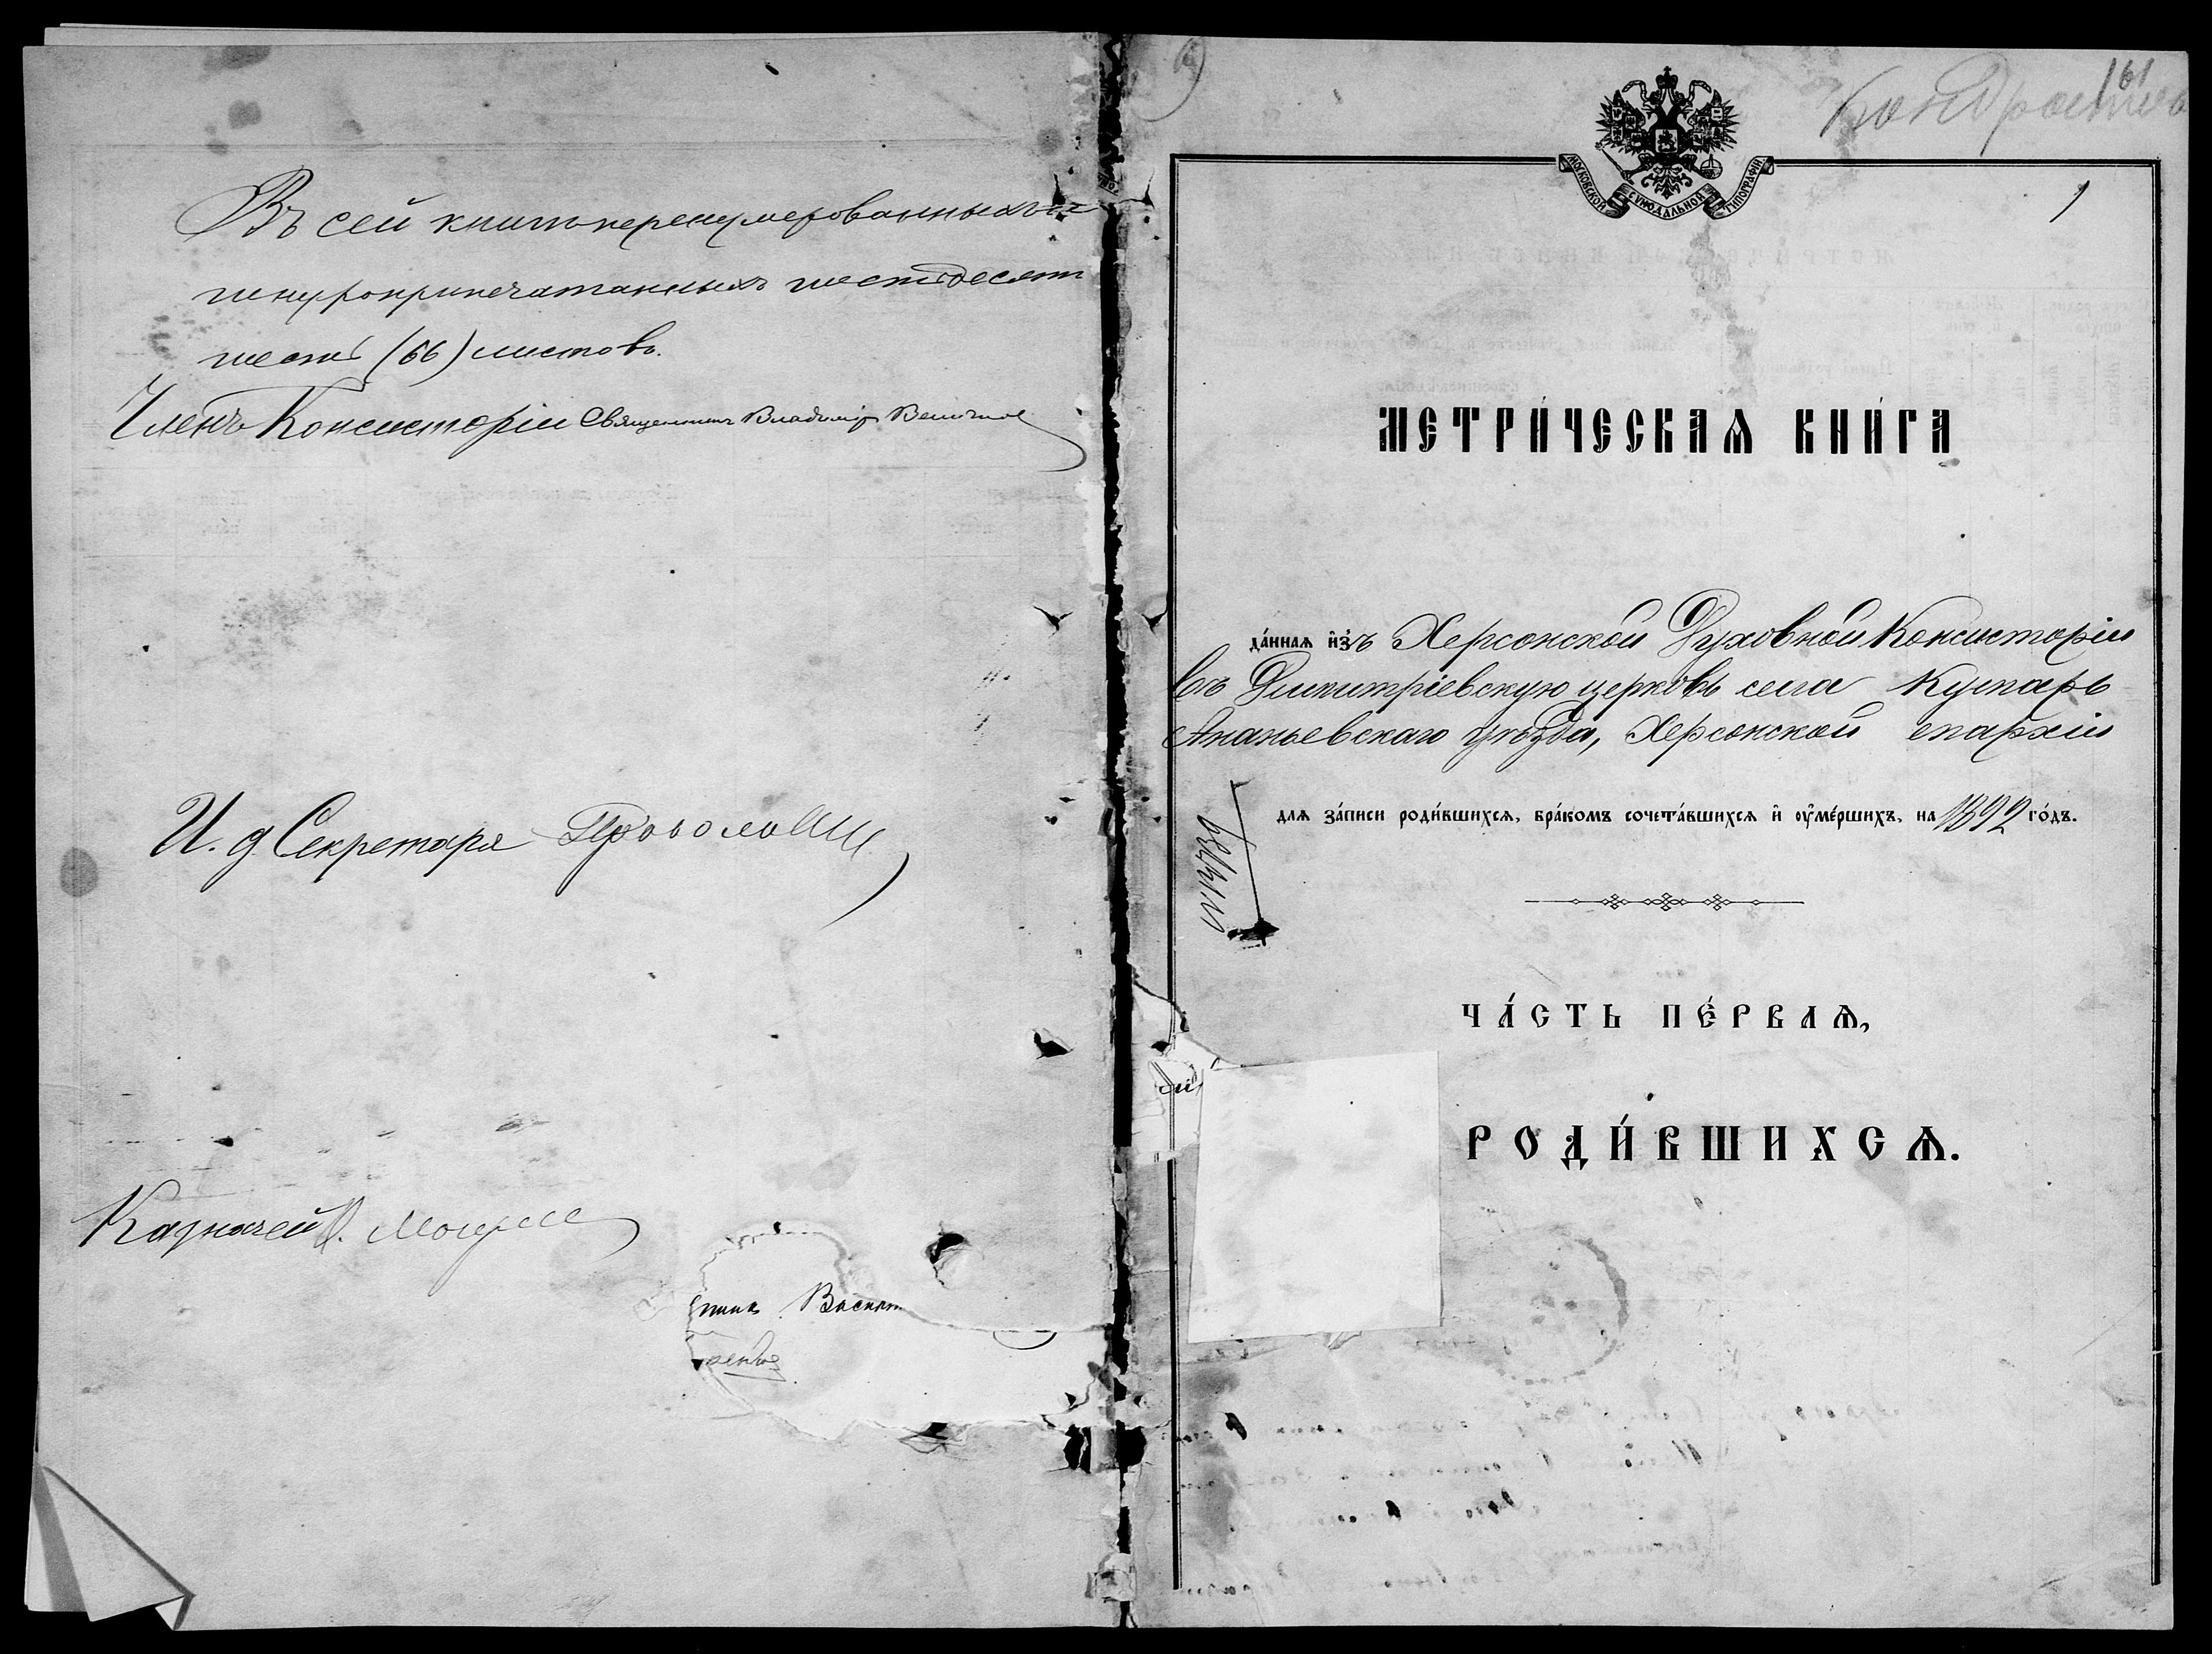 Въ сей книгѣ перенумерованныхъ и
шнуроприпечатанныхъ шестьдесятъ
шесть (66) листовъ.
Членъ Консисторіи Священникъ Владиміръ
И. д. Секретаря
Казначей
161
1
МОСКОВСКОЙ СѴНОДАЛЬНОЙ ТИПОГРАФІИ
МЕТРИ́ЧЕСКАѦ КНИ́ГА
да́ннаѧ и҆зъ Херсонской Духовной Консисторіи
въ Димитріевскую церковь села Кумары
Ананьевскаго уѣзда, Херсонской епархіи
длѧ за́писи роди́вшихсѧ, бра́комъ сочета́вшихсѧ и҆ оу҆ме́ршихъ, на 1892 го́дъ.
ЧА́СТЬ ПЕ́РВАѦ,
РОДИ́ВШИХСѦ.